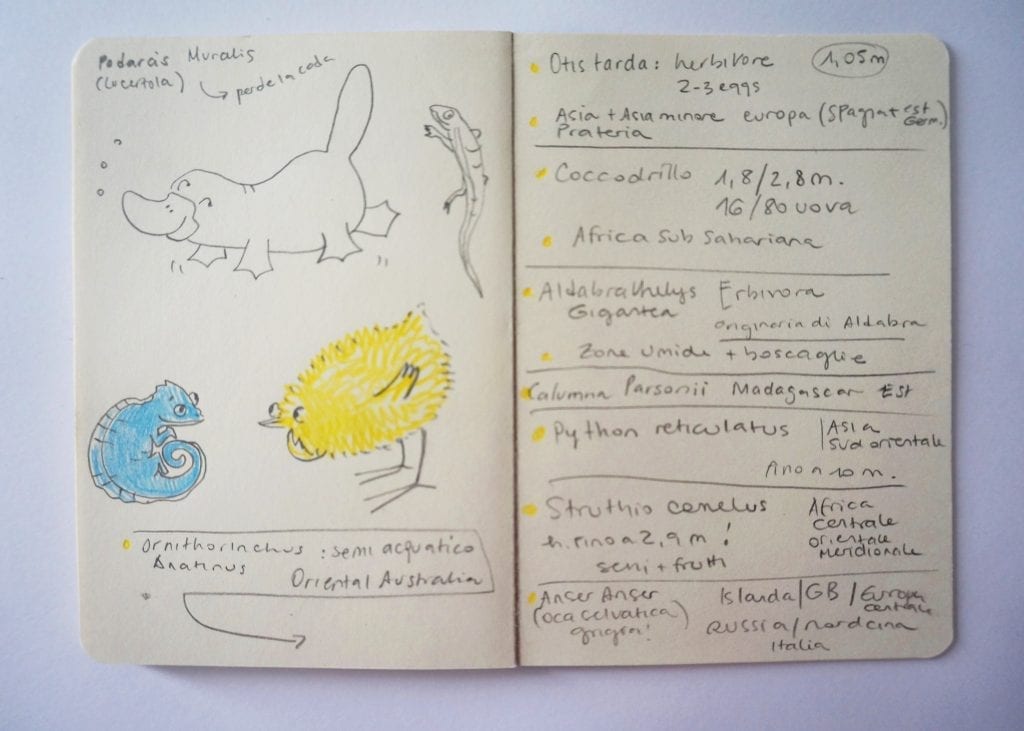 Podarcis Muralis
(Lucertola)
perde la coda
Ornithorinchus : semi acquatico
Anatinus
Oriental Australia
Otis tarda : herbivore 1,05m
2-3 eggs
Asia + Asia minore europa (Spagna + est Germ.)
Prateria
Coccodrillo 1,8/2,8 m.
16/80 uova
Africa Sub Sahariana
Aldabrachelys Erbivora
Gigantea
originaria di Aldabra
Zone umide + boscaglie
Calumna Parsonii Madagascar Est
Python reticulatus Asia
sud orientale
fino a 10 m.
Struthio camelus Africa
centrale
orientale
meridionale
h. fino a 2,9 m !
semi + frutti
Anser Anser Islanda/GB/Europa
centrale
(oca selvatica)
grigia!
Russia/nord cina
Italia